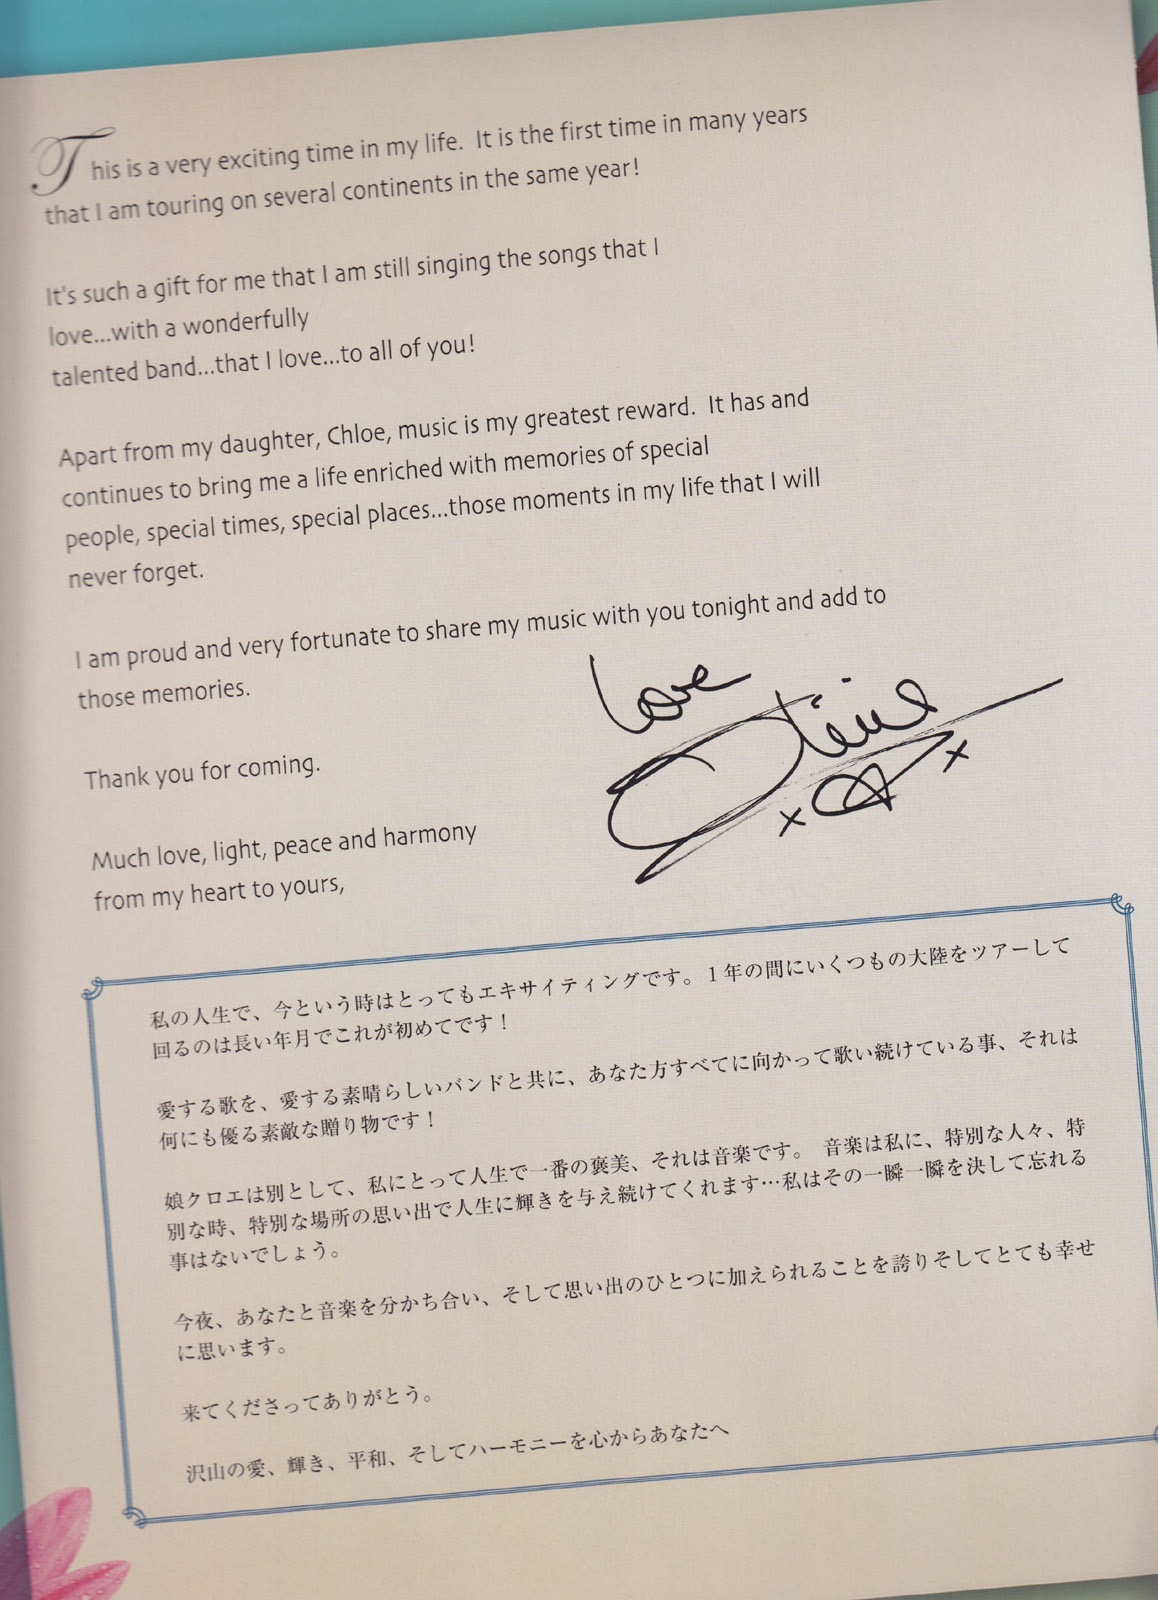 This is a very exciting time in my life. It is the first time in many years
that I am touring on several continents in the same year!
It's such a gift for me that I am still singing the songs that I
love...with a wonderfully
talented band...that I love...to all of you!
Apart from my daughter, Chloe, music is my greatest reward. It has and
continues to bring me a life enriched with memories of special
people, special times, special places...those moments in my life that I will
never forget.
I am proud and very fortunate to share my music with you tonight and add to
those memories.
Thank you for coming.
Much love, light, peace and harmony
from my heart to yours,
Love
私の人生で、今という時はとってもエキサイティングです。1年の間にいくつもの大陸をツアーして
回るのは長い年月でこれが初めてです！
愛する歌を、愛する素晴らしいバンドと共に、あなた方すべてに向かって歌い続けている事、それは
何にも優る素敵な贈り物です！
娘クロエは別として、私にとって人生で一番の褒美、それは音楽です。 音楽は私に、特別な人々、特
別な時、特別な場所の思い出で人生に輝きを与え続けてくれます…私はその一瞬一瞬を決して忘れる
事はないでしょう。
今夜、あなたと音楽を分かち合い、そして思い出のひとつに加えられることを誇りそしてとても幸せ
に思います。
来てくださってありがとう。
沢山の愛、輝き、平和、そしてハーモニーを心からあなたへ